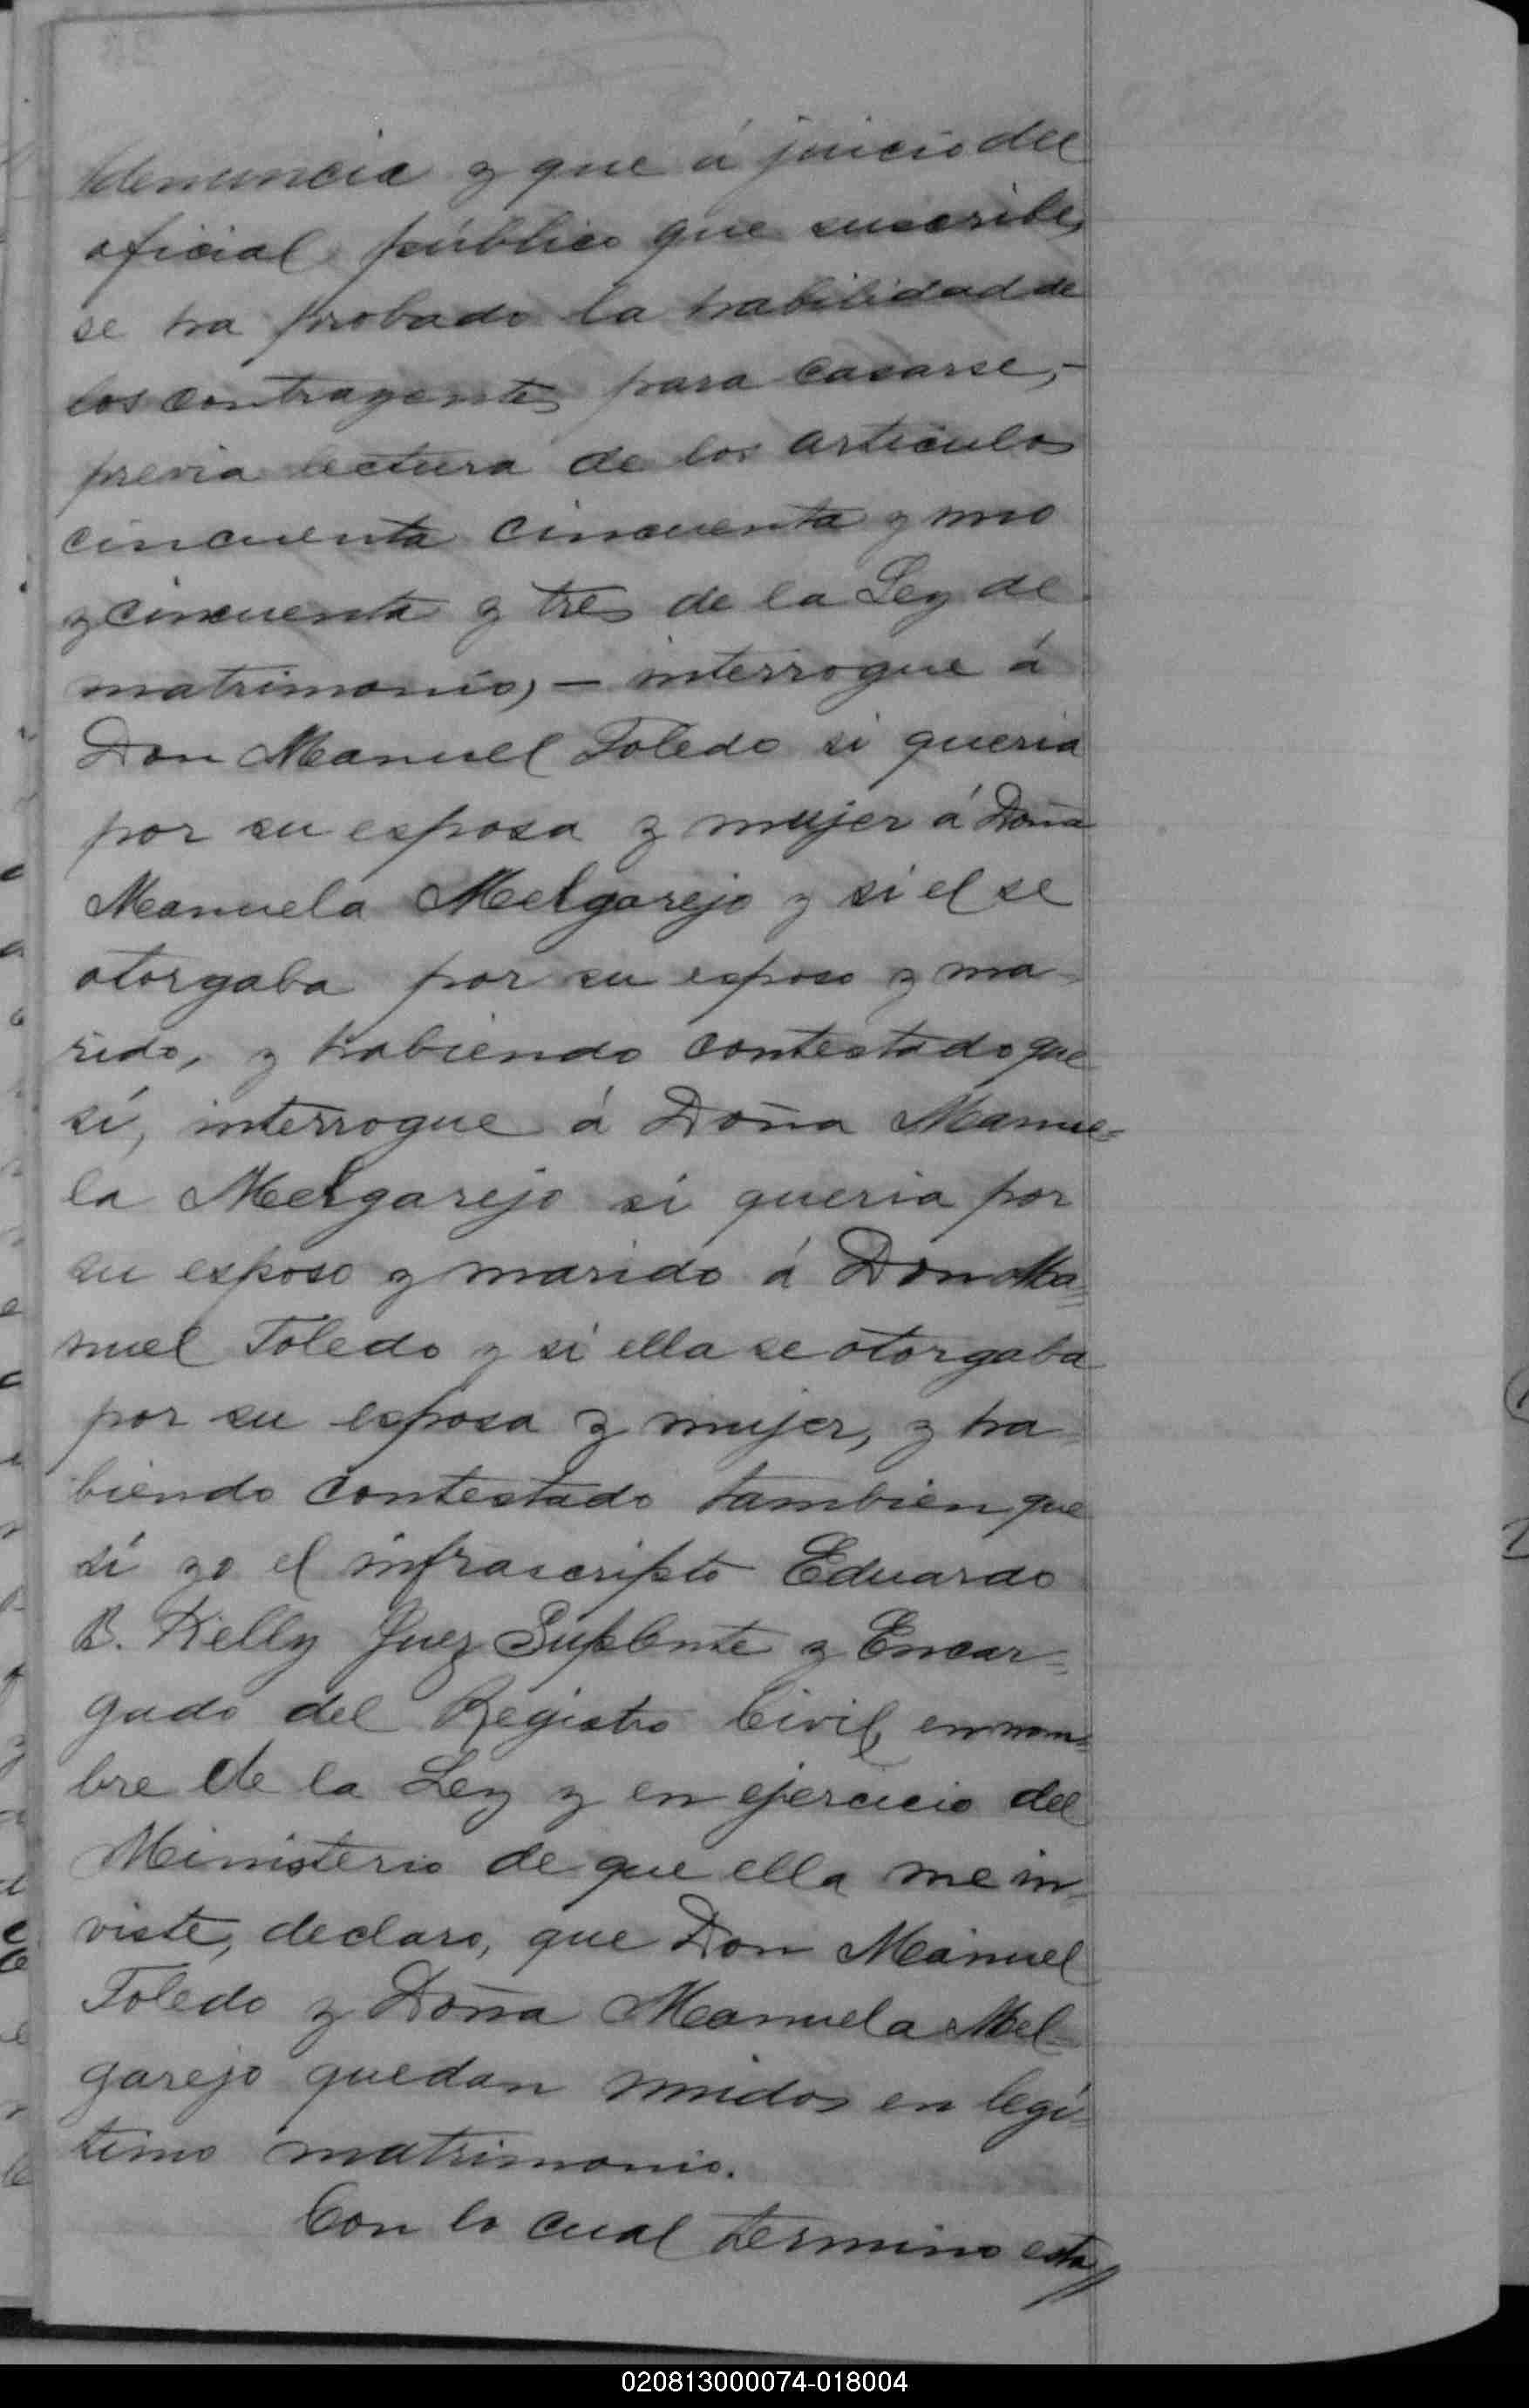 /denuncia y que á juicio del
oficial público que suscribe,
se ha probado la habilidad de
los contrayentes para casarse,-
previa lectura de los articulos
cincuenta cincuenta y uno
y cincuenta y tres de la Ley de
matrimonio,- interrogue á
Don Manuel Toledo si queria
por su esposa y mujer á Doña
Manuela Melgarejo y si el se
otorgaba por su esposo y ma-
rido, y habiendo contestado que
sí, interrogue á Doña Manue=
la Melgarejo si queria por
su esposo y marido á Don Ma=
nuel Toledo y si ella se otorgaba
por su esposa y mujer, y ha=
biendo contestado tambien que
sí yo el infrascripto Eduardo
B. Kelly Juez Suplente y Encar=
gado del Registro Civil, en nom=
bre de la Ley y en ejercicio del
Ministerio de que ella me in=
viste, declaro, que Don Manuel
Toledo y Doña Manuela Mel=
garejo quedan unidos en legí=
timo matrimonio.
Con lo cual termino esta//
020813000074-018004